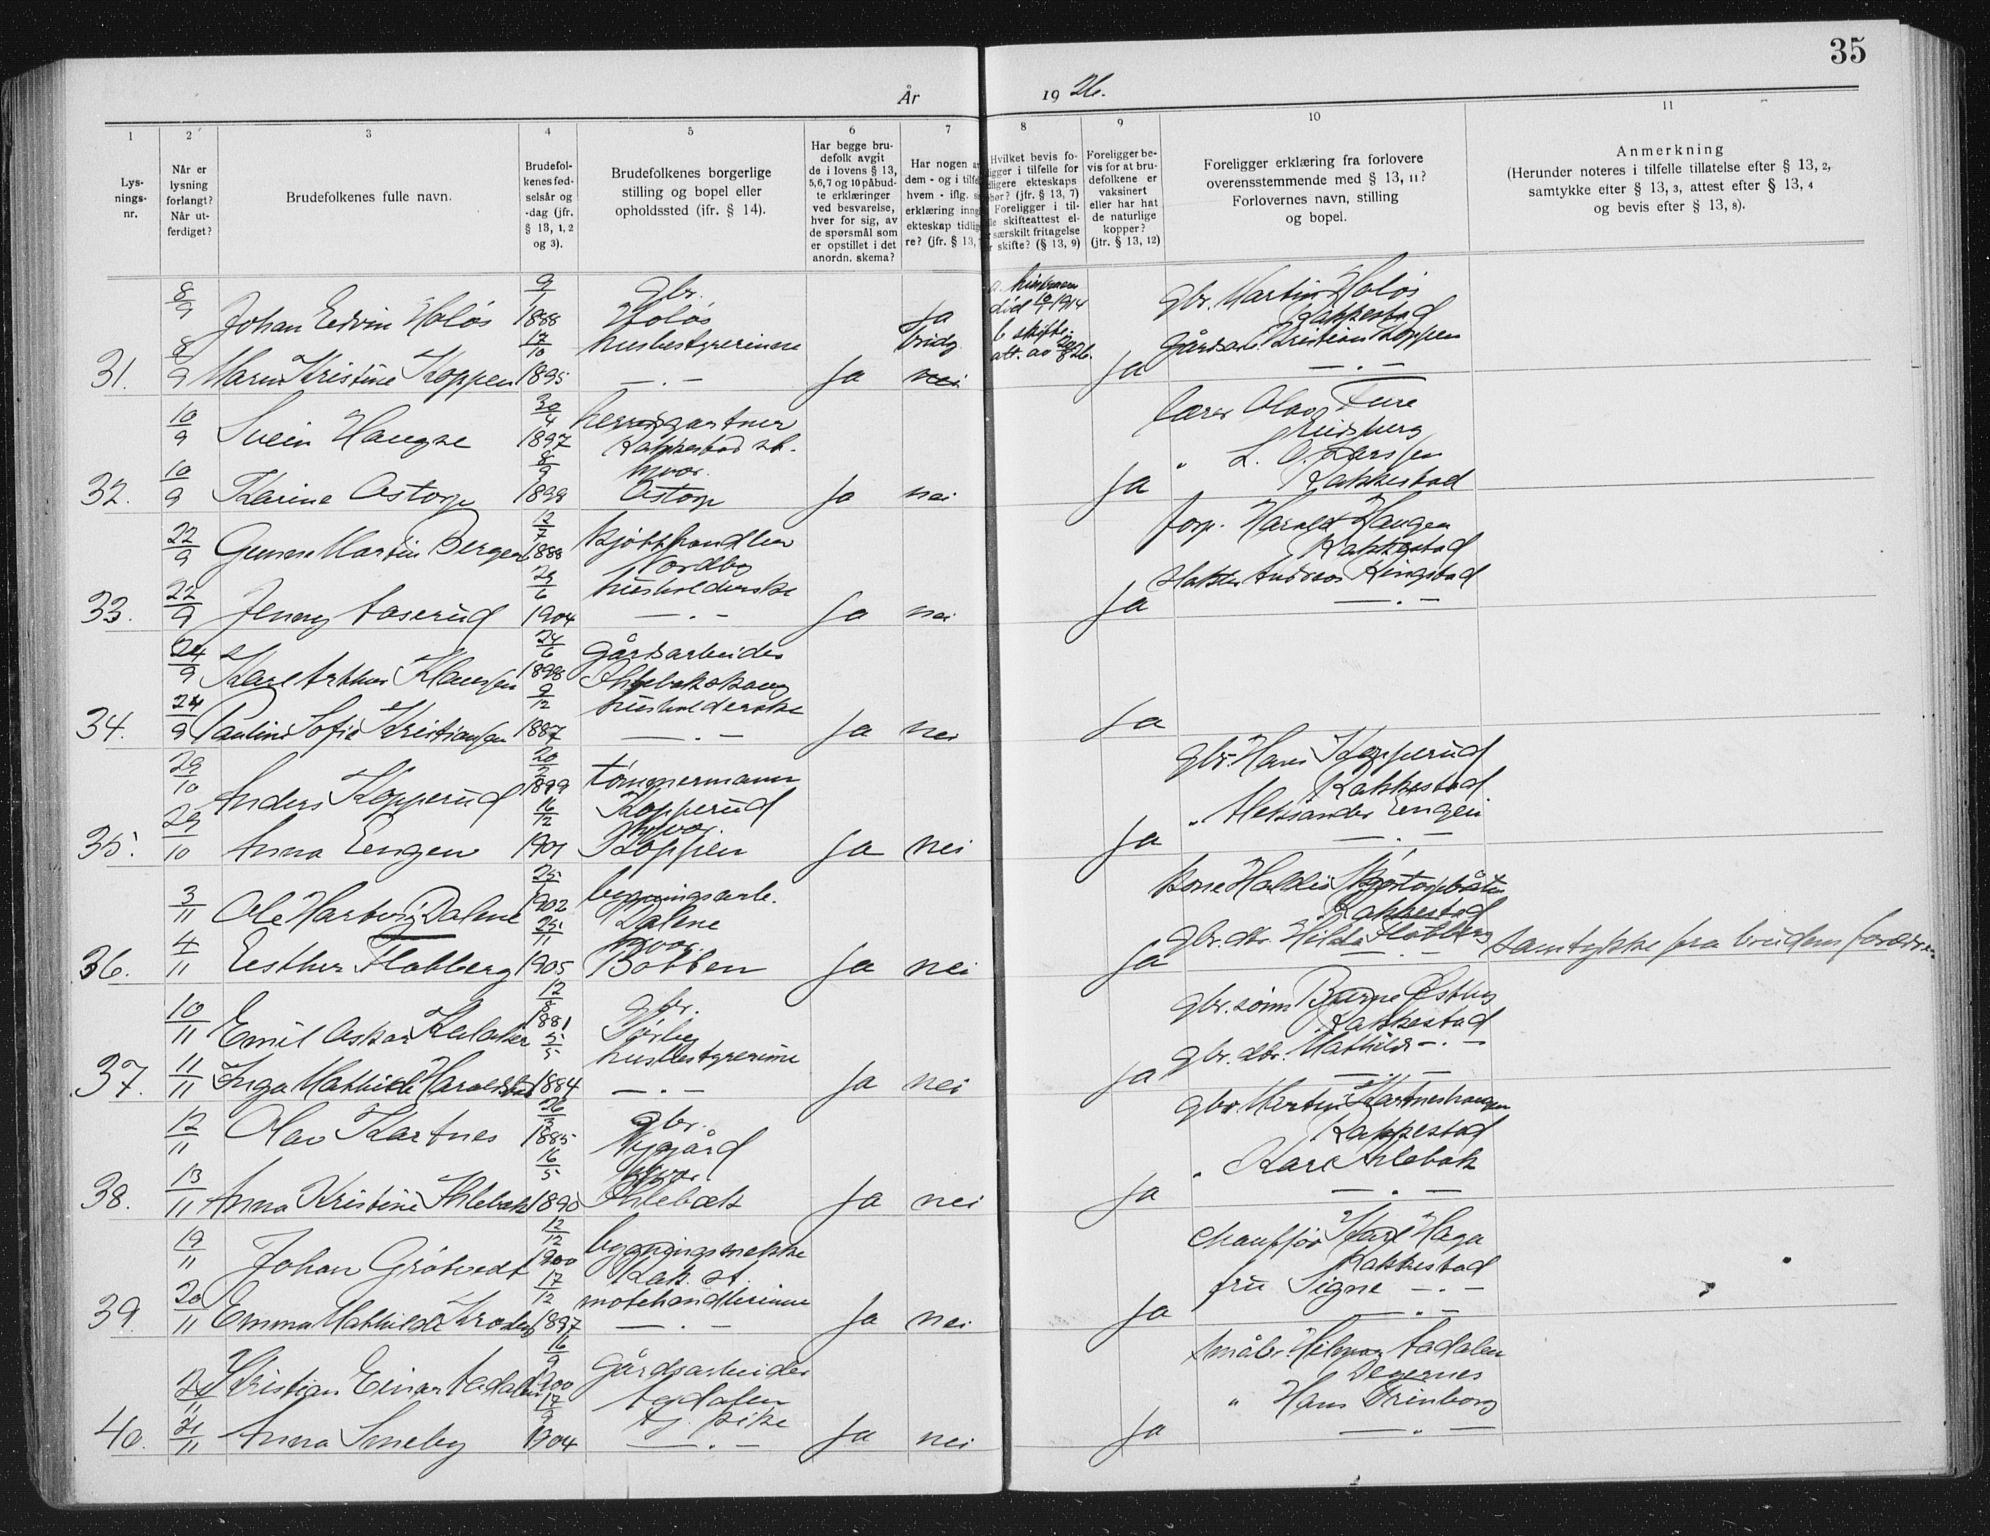 35
År 1926.
1 2 3 4 5 6 7 8 9 10 11
Lysnings-nr.
Når er lysning forlangt? Når utferdiget?
Brudefolkenes fulle navn.
Brudefolkenes fødselsår og -dag (jfr. § 13, 1, 2 og 3).
Brudefolkenes borgerlige stilling og bopel eller opholdssted (jfr. § 14).
Har begge brudefolk avgit de i lovens § 13, 5, 6, 7 og 10 påbudte erklæringer ved besvarelse, hver for sig, av de spørsmål som er opstillet i det anordn. skema?
Har nogen a dem - og i tilfe hvem - iflg. s erklæring inng ekteskap tidlig re? (jfr. § 13,
Hvilket bevis fo- ligger i tilfelle for dligere ekteskaps hør? (jfr. § 13, 7) Foreligger i til- le skifteattest el- særskilt fritagelse r skifte? (§ 13, 9)
Foreligger bevis for at brudefolkene er vaksinert eller har hat de naturlige kopper? (jfr. § 13, 12)
Foreligger erklæring fra forlovere overensstemmende med § 13, 11? Forlovernes navn, stilling og bopel.
Anmerkning (Herunder noteres i tilfelle tillatelse efter § 13, 2, samtykke efter § 13, 3, attest efter § 13, 4 og bevis efter § 13, 8).
8/9 Johan Edvin Holøs 9/1 1888 gbr. Holøs Ja a. hustruen død 1914 gbr. Martin Holøs Rakkestad
31. 8/9 Maren Kristine Koppen 17/10 1895 husbestyrerinne — . — Ja nei b skifte- att. av Ja Kristian Koppen — . —
10/9 Svein Haugse 30/4 1897 herredsgartner Rakkestad st. lærer Olav Ture
32. 10/9 Karine Østorp 8/9 1898 hjvær. Østorp Ja nei Ja " L. O. Larssen Rakkestad
22/9 Gunnar Martin Bergen 12/7 1888 kjøtthandler Nordby forp. Harald Haugen Rakkestad
33. 22/9 Jenny Aaserud 1904 husholderske — . — Ja nei Ja Andreas Kingstad — . —
24/9 Karl Arthur Klausen 24/6 1898 gårdsarbeider
34. 24/9 Pauline Sofie Kristiansen 9/12 1887 husholderske — . — Ja nei Ja
29/10 Anders Kopperud 20/2 1899 tømmermann Kopperud gbr. Hans Kopperud Rakkestad
35. 29/10 Anna Eengen 16/12 1901 hjvær. Koppen Ja nei Ja " Aleksander Eengen — . —
3/11 Ole Hartvig Dalene 25/1 1902 bygningsarb. Dalene Rakkestad
36. 4/11 Eesther Flobberg 25/11 1905 hjvær. Botten Ja nei Ja gbr. dtr. Hilda Flobberg — . — Samtykke fra brudens forældre.
10/11 Emil Oskar 12/8 1881 gbr. Sørby gbr. sønn Bjarne Østby Rakkestad
37. 11/11 Inga Mathilde Haraldstad 5/5 1884 husbestyrerinne — . — Ja nei Ja gbr. dtr. Mathilde — . —
12/11 Olav Kartnes 26/3 1885 gbr. Nygård gbr Martin Kartneshaugen Rakkestad
38. 13/11 Anna Kristine Ihlebæk 16/5 1890 hjvær. Ihlebæk Ja nei Ja " Kare Ihlebæk — . —
19/11 Johan Grötvedt 12/12 1900 bygningssnekker Rak. st. chauffør Karl Haga Rakkestad
39. 20/11 Emma Mathilde 17/12 1897 motehandlerinne — . — Ja nei Ja fru Signe — . —
24/11 Kristian Einar Aadalen 16/9 1900 Gårdsarbeider Aadalen småbr. Aadalen Degernes
40. 24/11 Anna Smeby 17/9 1904 tj. pike — . — Ja nei Ja " Hans Trinborg — . —